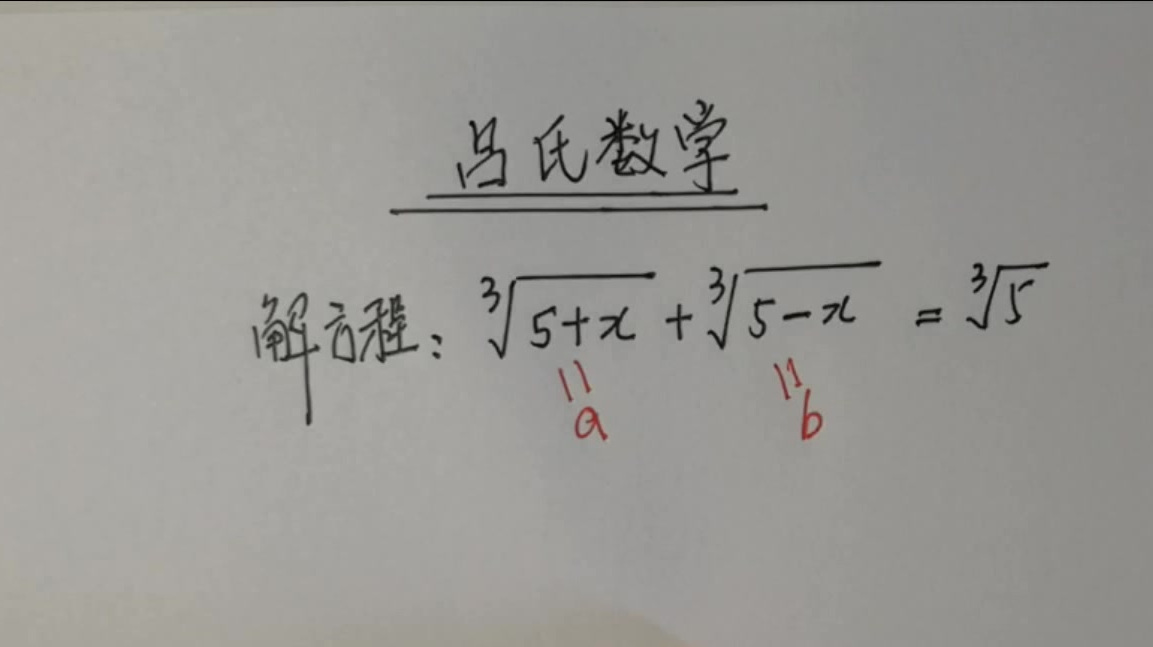 吕氏数学
解方程: ∛(5+x) + ∛(5-x) = ∛5
=a =b